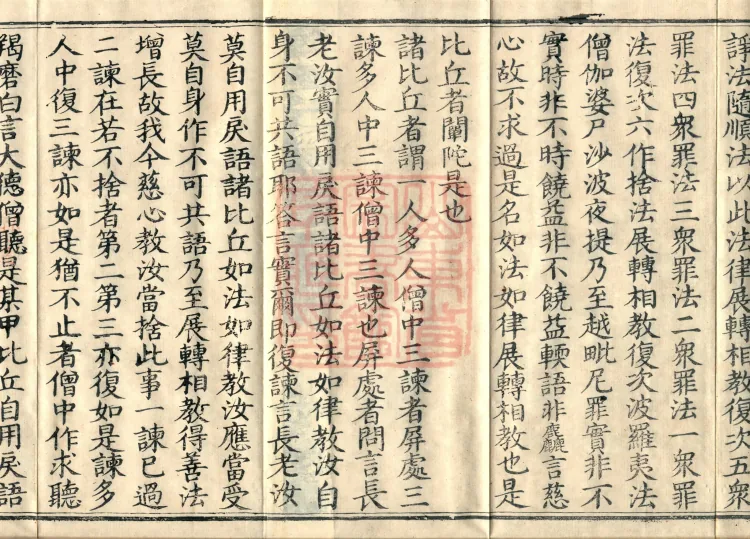 諍法隨順法以此法律展轉相教復次五衆
罪法四衆罪法三衆罪法二衆罪法一衆罪
法復次六作捨法展轉相教復次波羅夷法
僧伽婆尸沙波夜提乃至越毗尼罪實非不
實時非不時饒益非不饒益輭語非麤言慈
心故不求過是名如法如律展轉相教也是
比丘者闡陀是也
諸比丘者謂一人多人僧中三諫者屏處三
諫多人中三諫僧中三諫也屏處者問言長
老汝實自用戾語諸比丘如法如律教汝自
身不可共語耶荅言實爾即復諫言長老汝
莫自用戾語諸比丘如法如律教汝應當受
莫自身作不可共語乃至展轉相教得善法
增長故我今慈心教汝當捨此事一諫已過
二諫在若不捨者第二第三亦復如是諫多
人中復三諫亦如是猶不止者僧中作求聽
羯磨白言大德僧聽是某甲比丘自用戾語